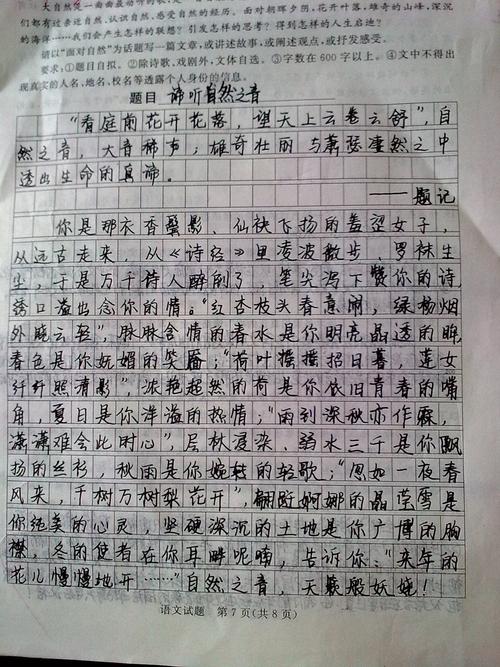 大自然是一曲曲最动听的歌,
们都有过亲近自然,认识自然,感受自然的经历。面对朝晖夕阴,花开叶落,雄奇的山峰,深沉
的海洋……我们会产生怎样的联想?引发怎样的思考?得到怎样的人生启迪?
请以“面对自然”为话题写一篇文章,或讲述故事,或阐述观点,或抒发感受。
要求:①题目自拟。②除诗歌、戏剧外,文体自选。③字数在600字以上。④文中不得出
现真实的人名、地名、校名等透露个人身份的信息。
题目 谛听自然之音
“看庭前花开花落,望天上云卷云舒”,自
然之音,大音稀声;雄奇壮丽与萧瑟凄然之中
透出生命的真谛。
——题记
你是那衣香鬓影、仙袂飞扬的羞涩女子,
从远古走来,从《诗经》里凌波微步,罗袜生
尘,于是万千诗人醉倒了,笔尖泻下赞你的诗,
绣口溢出念你的情。“红杏枝头春意闹,绿杨烟
外晓云轻”,脉脉含情的春水是你明亮晶透的眸,
春色是你妩媚的笑靥;“荷叶摇摇招日暮,莲女
纤纤照清影”,浓艳超然的荷是你依旧青春的嘴
角,夏日是你洋溢的热情;“雨到深秋亦作霖,
潇潇难会此时心”,层林浸染、弱水三千是你飘
扬的丝衫,秋雨是你婉转的轻歌;“忽如一夜春
风来,千树万树梨花开”,翩跹婀娜的晶莹雪是
你绝美的心灵,坚硬深沉的土地是你广博的胸
襟,冬的使者在你耳畔呢喃,告诉你:“来年的
花儿慢慢地开……”自然之音,天籁般妖娆!
语文试题 第7页(共8页)